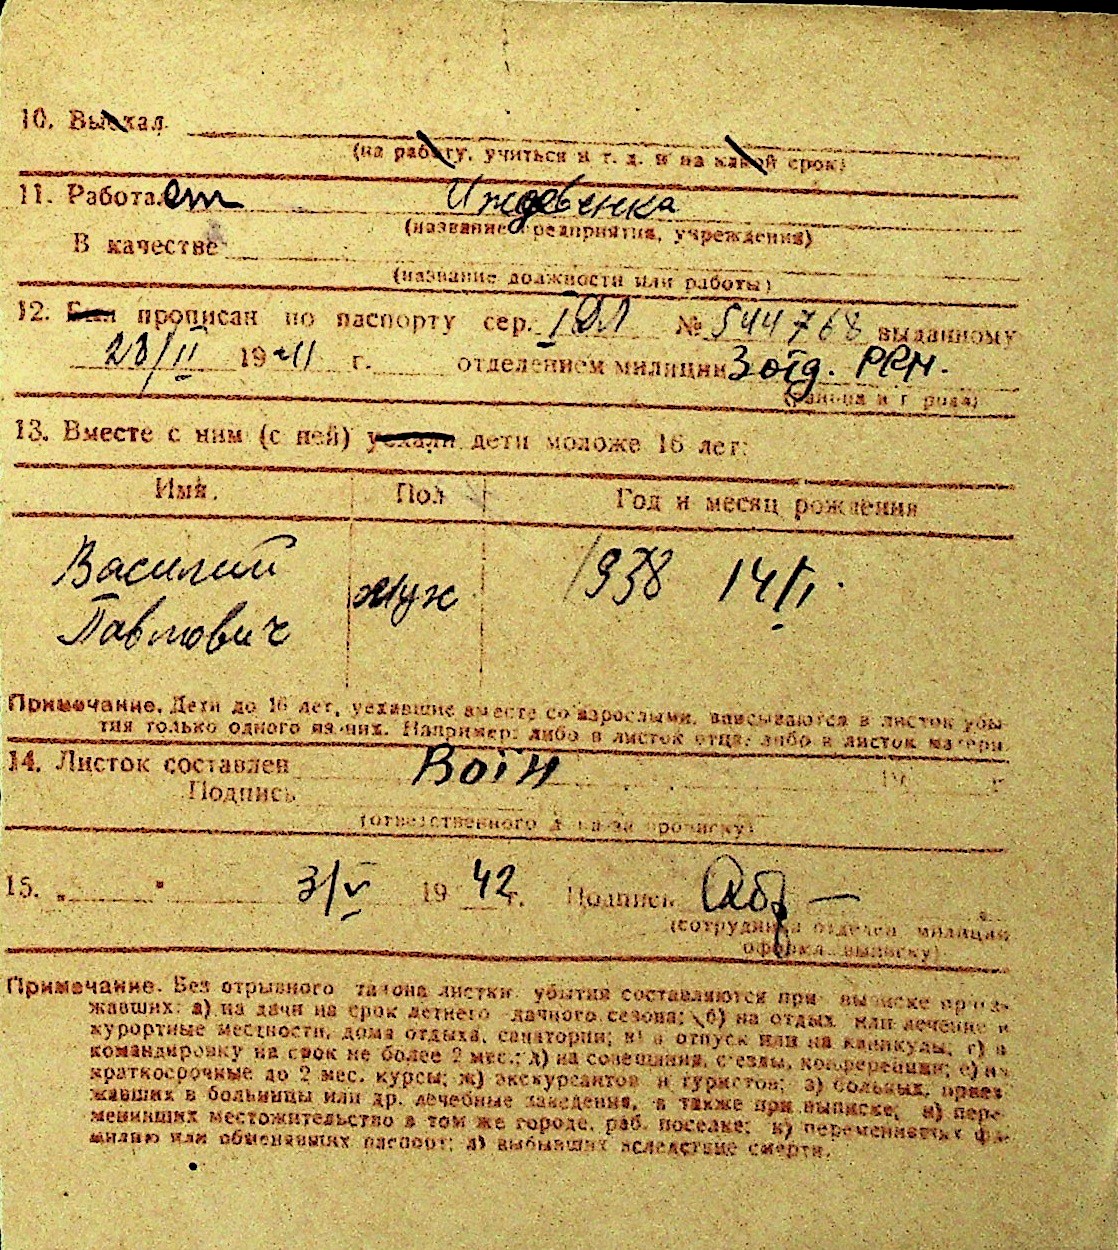 10. Выехал
(на работу, учиться и т. д. и на какой срок)
11. Работает Иждевенка
(название предприятия, учреждения)
В качестве
(название должности или работы)
12. Был прописан по паспорту сер. I ДЛ № 544768 выданному
23/II 19 41 г. отделением милиции 3 отд. РКМ.
13. Вместе с ним (с ней) уехали дети моложе 16 лет:
Имя. Пол Год и месяц рождения
Василий муж 1938 14/I.
Павлович
Примечание. Дети до 16 лет, уехавшие вместе со взрослыми, вписываются в листок убы-
тия только одного из них. Например: либо в листок отца, либо в листок матери
14. Листок составлен 19 г.
Подпись
(ответственного за прописку)
15. „ " 3/V 19 42 г. Подпись
(сотрудника отделен. милиции
оформл. выписку)
Примечание. Без отрывного талона листки убытия составляются при выписке приез-
жавших: а) на дачи на срок летнего дачного сезона; б) на отдых или лечение в
курортные местности, дома отдыха, санатории; в) в отпуск или на каникулы; г) в
командировку на срок не более 2 мес.; д) на совещания, съезды, конференции; е) на
краткосрочные до 2 мес. курсы; ж) экскурсантов и туристов; з) больных, приез-
жавших в больницы или др. лечебные заведения, а также при выписке; и) пере-
менивших местожительство в том же городе, раб. поселке; к) переменивших фа-
милию или обменявших паспорт; л) выбывших вследствие смерти.